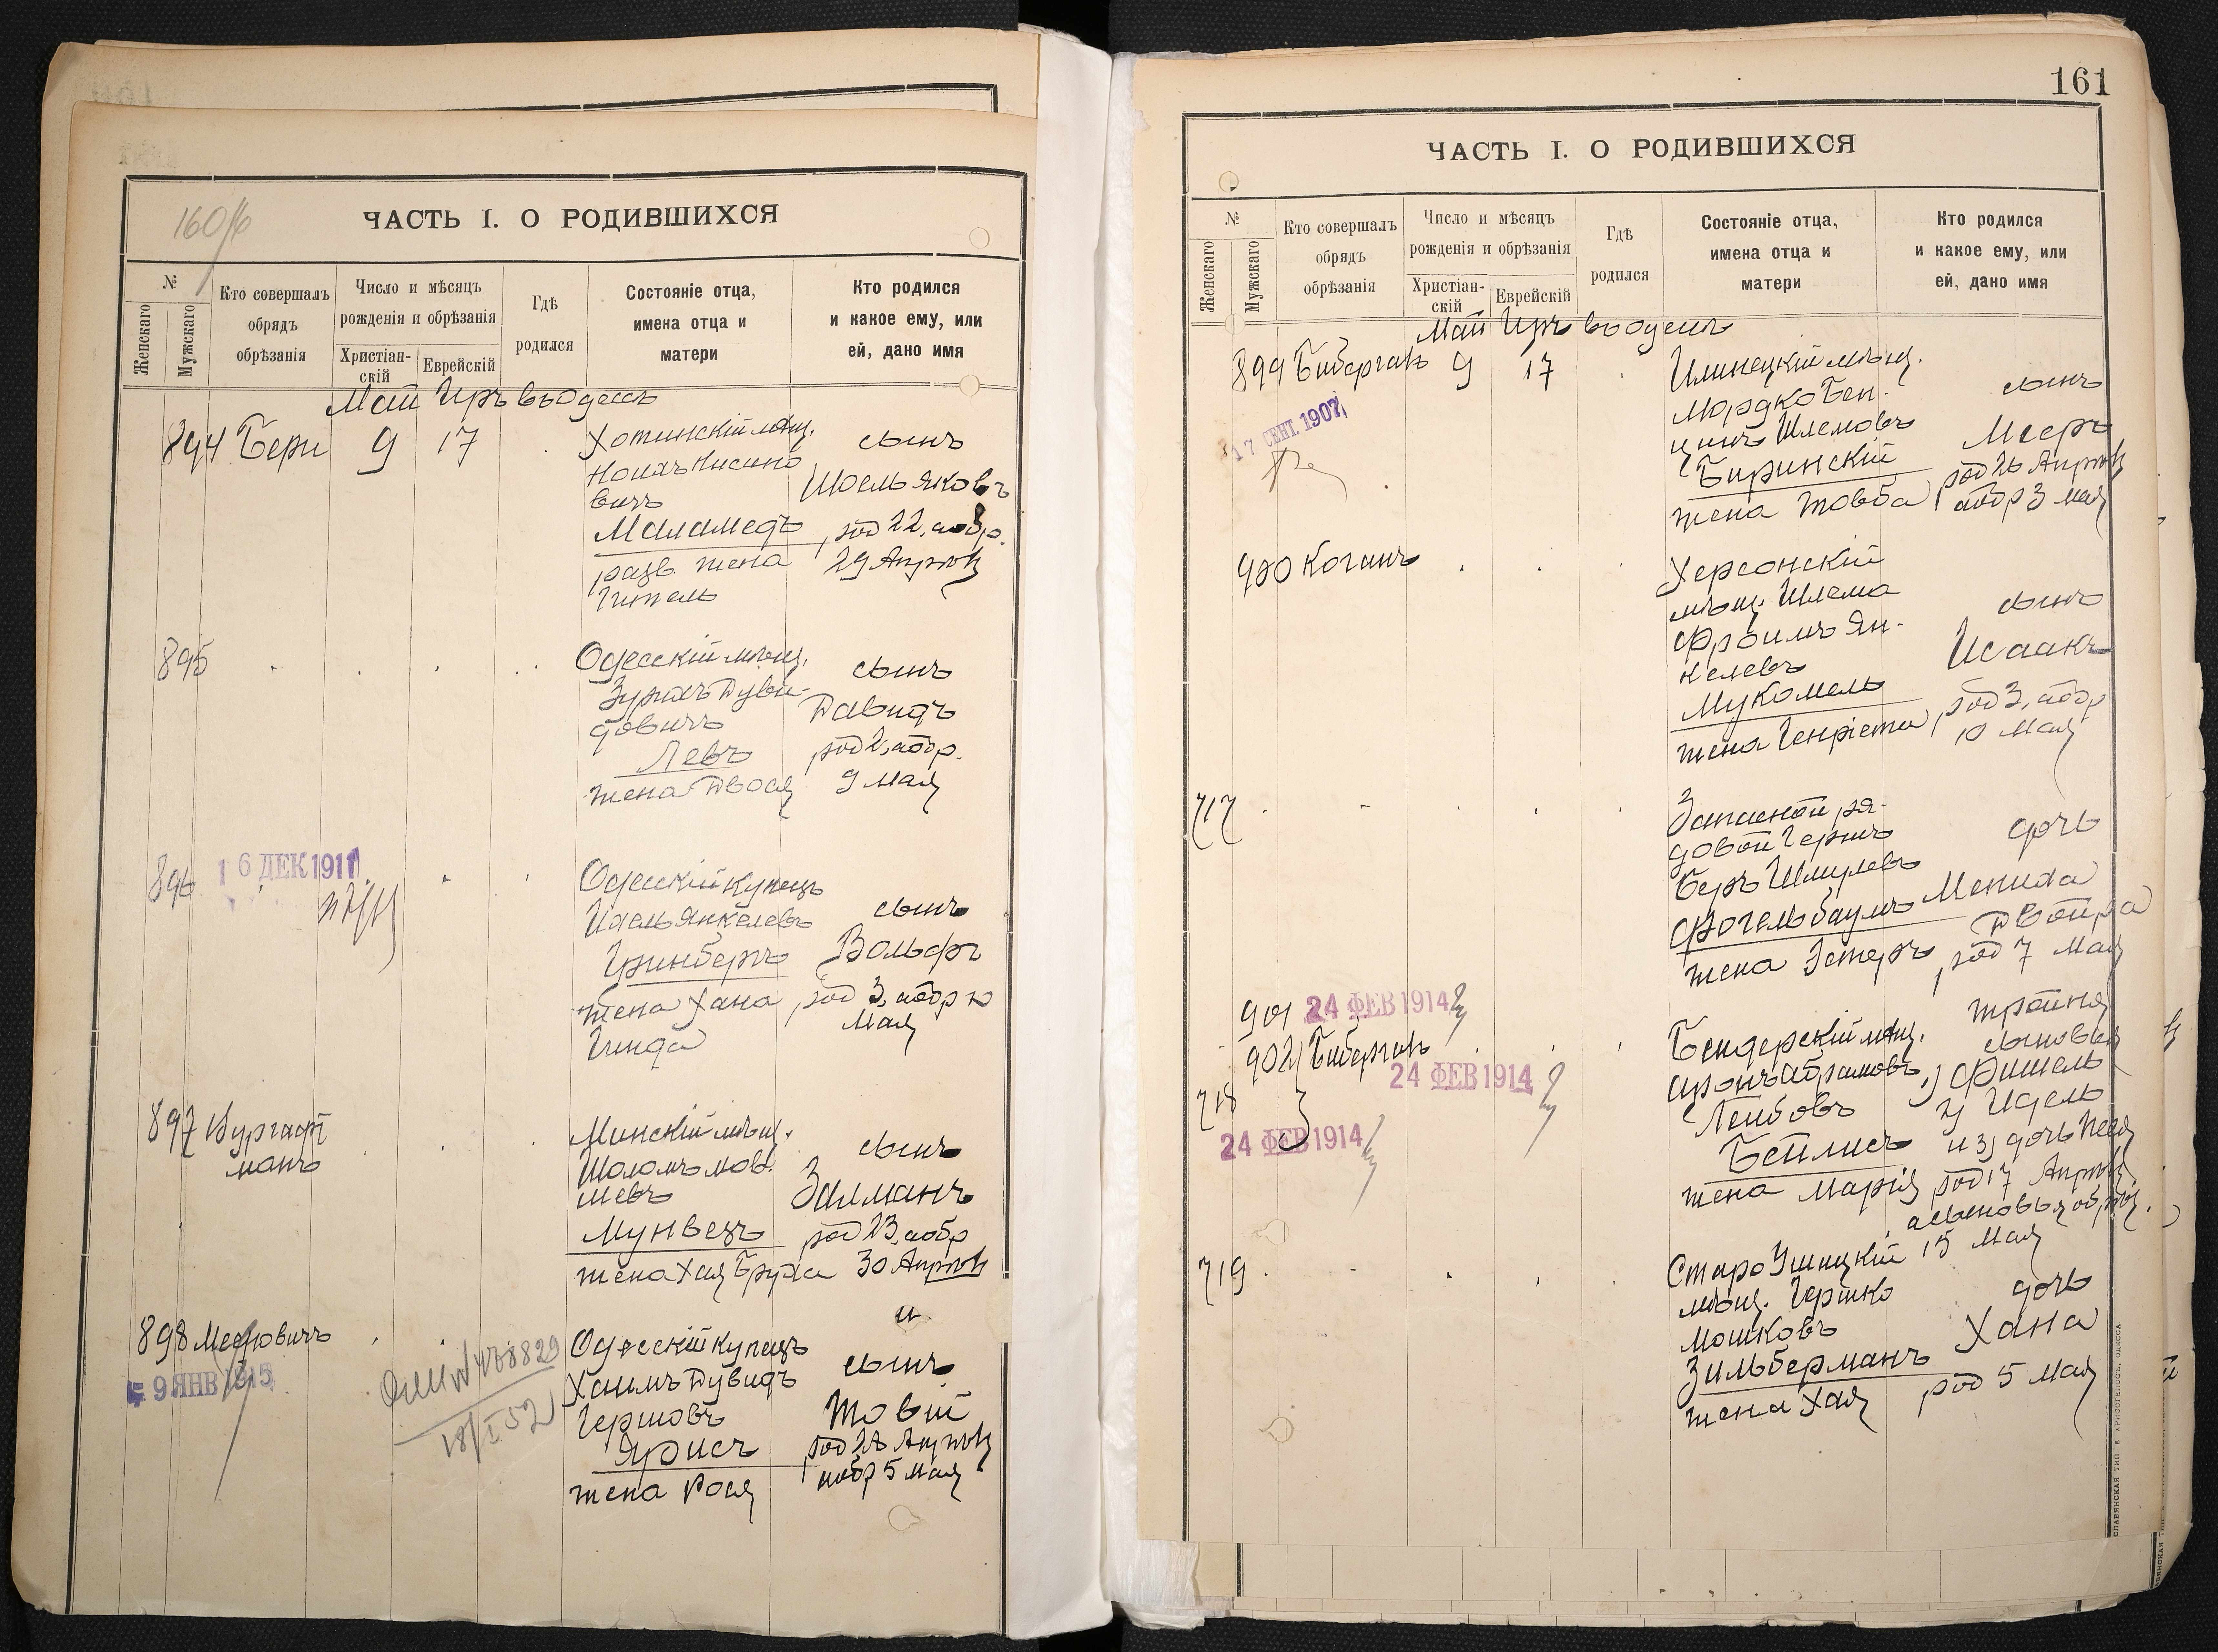 160
ЧАСТЬ I. О РОДИВШИХСЯ
№
Женскаго
Мужскаго
Кто совершалъ
обрядъ
обрѣзанія
Число и мѣсяцъ
рожденія и обрѣзанія
Христіан-
скій
Еврейскій
Гдѣ
родился
Состояніе отца,
имена отца и
матери
Кто родился
и какое ему, или
ей, дано имя
Май Іиръ въ Одессѣ
894 Бери 9 17
Хотинскій мѣщ.
вичъ
Маламедъ
разв. жена
Гитель
сынъ
Шоель Яковъ
род 22, а обр.
29 Апрѣля
895
Одесскій мѣщ.
Зурахъ Дуви-
довичъ
Левъ
жена Двося
сынъ
Давидъ
род 2, а обр.
9 Мая
896
16 ДЕК 1911
Одесскій купецъ
Ихель Янкелевъ
Гринбергъ
жена Хана
Гинда
сынъ
Вольфъ
род 3, а обр 10
Мая
897 Вургафт
манъ
Минскій мѣщ.
Шоломъ Мов-
шевъ
Мунвезъ
жена Хая Бруха
сынъ
Залманъ
род 23, а обр
30 Апрѣля
898 Мееровичъ
9 ЯНВ 1915
18/I 52
Одесскій купецъ
Хаимъ Дувидъ
Гершовъ
Ярисъ
жена Рося
сынъ
Товій
род 28 Апрѣля
а обр 5 Мая
161
ЧАСТЬ I. О РОДИВШИХСЯ
№
Женскаго
Мужскаго
Кто совершалъ
обрядъ
обрѣзанія
Число и мѣсяцъ
рожденія и обрѣзанія
Христіан-
скій
Еврейскій
Гдѣ
родился
Состояніе отца,
имена отца и
матери
Кто родился
и какое ему, или
ей, дано имя
Май Іиръ въ Одессѣ
899 Бибергалъ 9 17
17 СЕНТ. 1907
Илинецкій мѣщ.
Мордко Бен-
ціинъ Шлемовъ
Биринскій
жена Товба
сынъ
Мееръ
род 26 Апрѣля
а обр 3 Мая
900 Коганъ
Херсонскій
мѣщ. Шлема
Фроимъ Ян-
келевъ
Мукомель
жена Генріета
сынъ
Исаакъ
род 3, а обр
10 Мая
717
Запасной ря-
довой Гершъ
Беръ Шмулевъ
Фогельбаумъ
жена Эстеръ
дочь
Мениха
Двойра
род 7 Мая
901 24 ФЕВ 1914
902 Бибергалъ
24 ФЕВ 1914
718
24 ФЕВ 1914
Бендерскій мѣщ.
Аронъ Абрамовъ
Лейбовъ
Бейлисъ
жена Марія
тройня
сыновья
1) Фишель
2) Идель
и 3) дочь Песя
род 17 Апрѣля
а сыновья обрѣз.
15 Мая
719
Старо Ушицкій
мѣщ. Гершко
Мошковъ
Зильберманъ
жена Хая
дочь
Хана
род 5 Мая